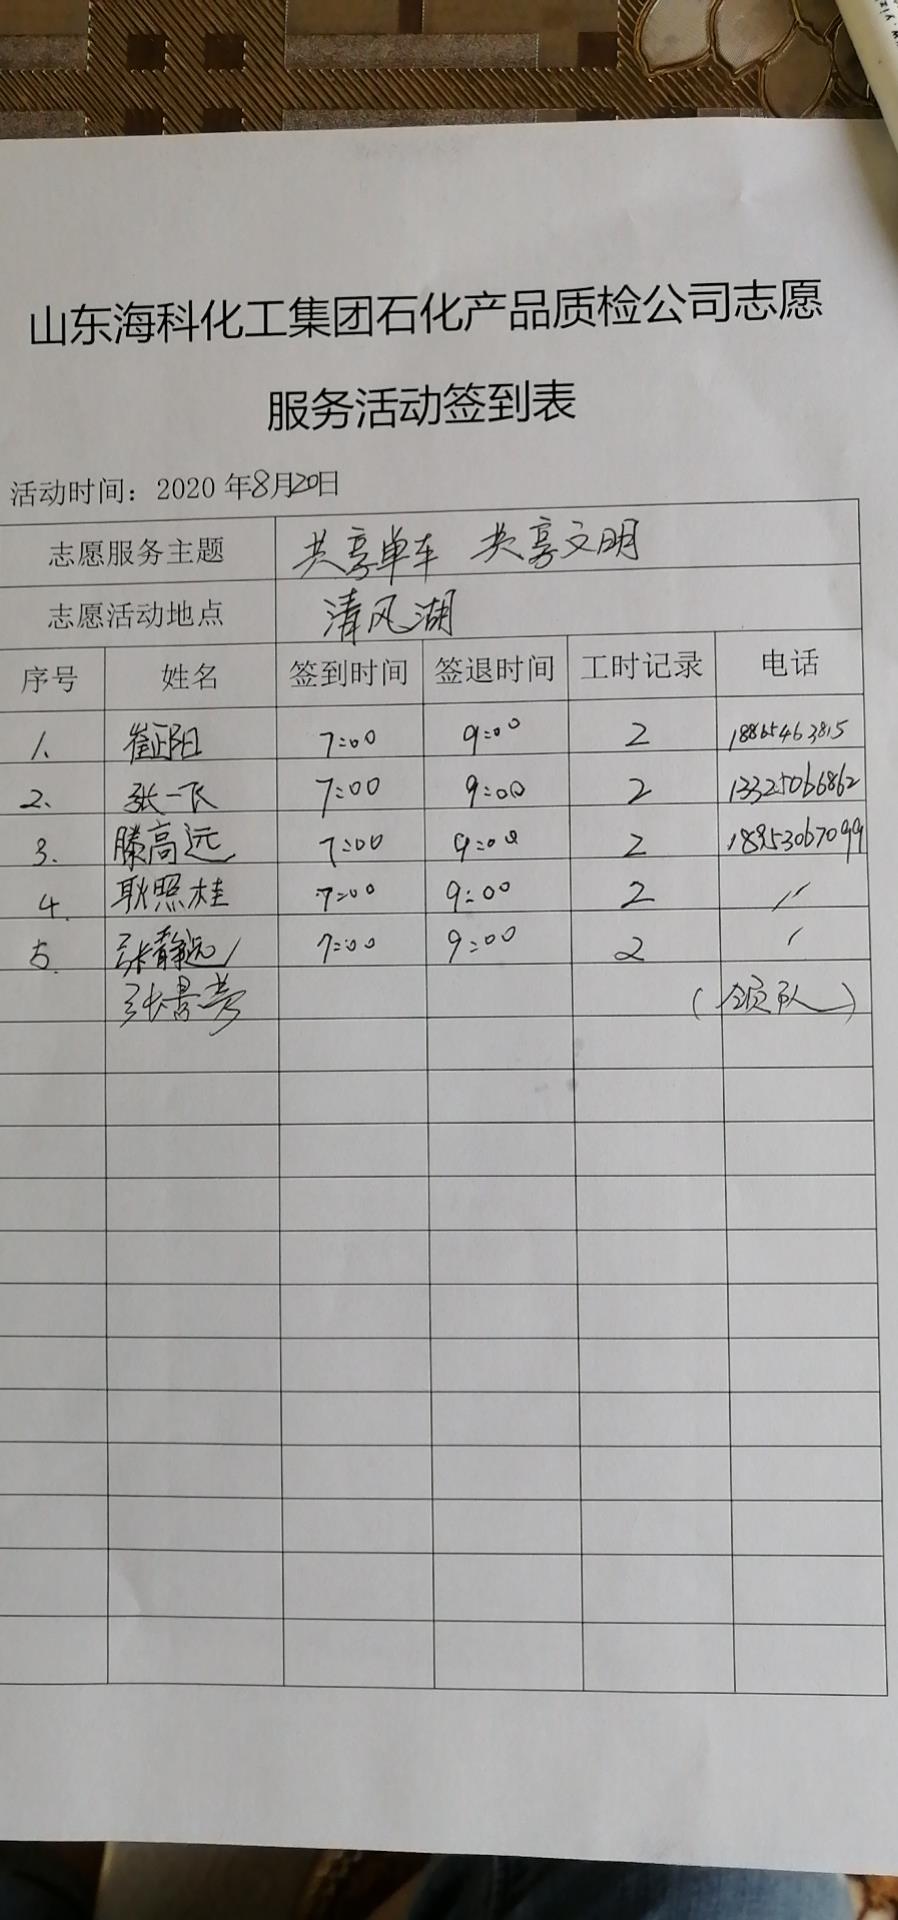 山东海科化工集团石化产品质检公司志愿
服务活动签到表
活动时间：2020年8月20日
志愿服务主题 共享单车 共享文明
志愿活动地点 清风湖
序号 姓名 签到时间 签退时间 工时记录 电话
1. 崔正阳 7:00 9:00 2 18865463815
2. 张一飞 7:00 9:00 2 13325066862
3. 滕高远 7:00 9:00 2 18953067099
4. 耿照桂 7:00 9:00 2 〃
5. 张静远 7:00 9:00 2
张景梦 (领队)